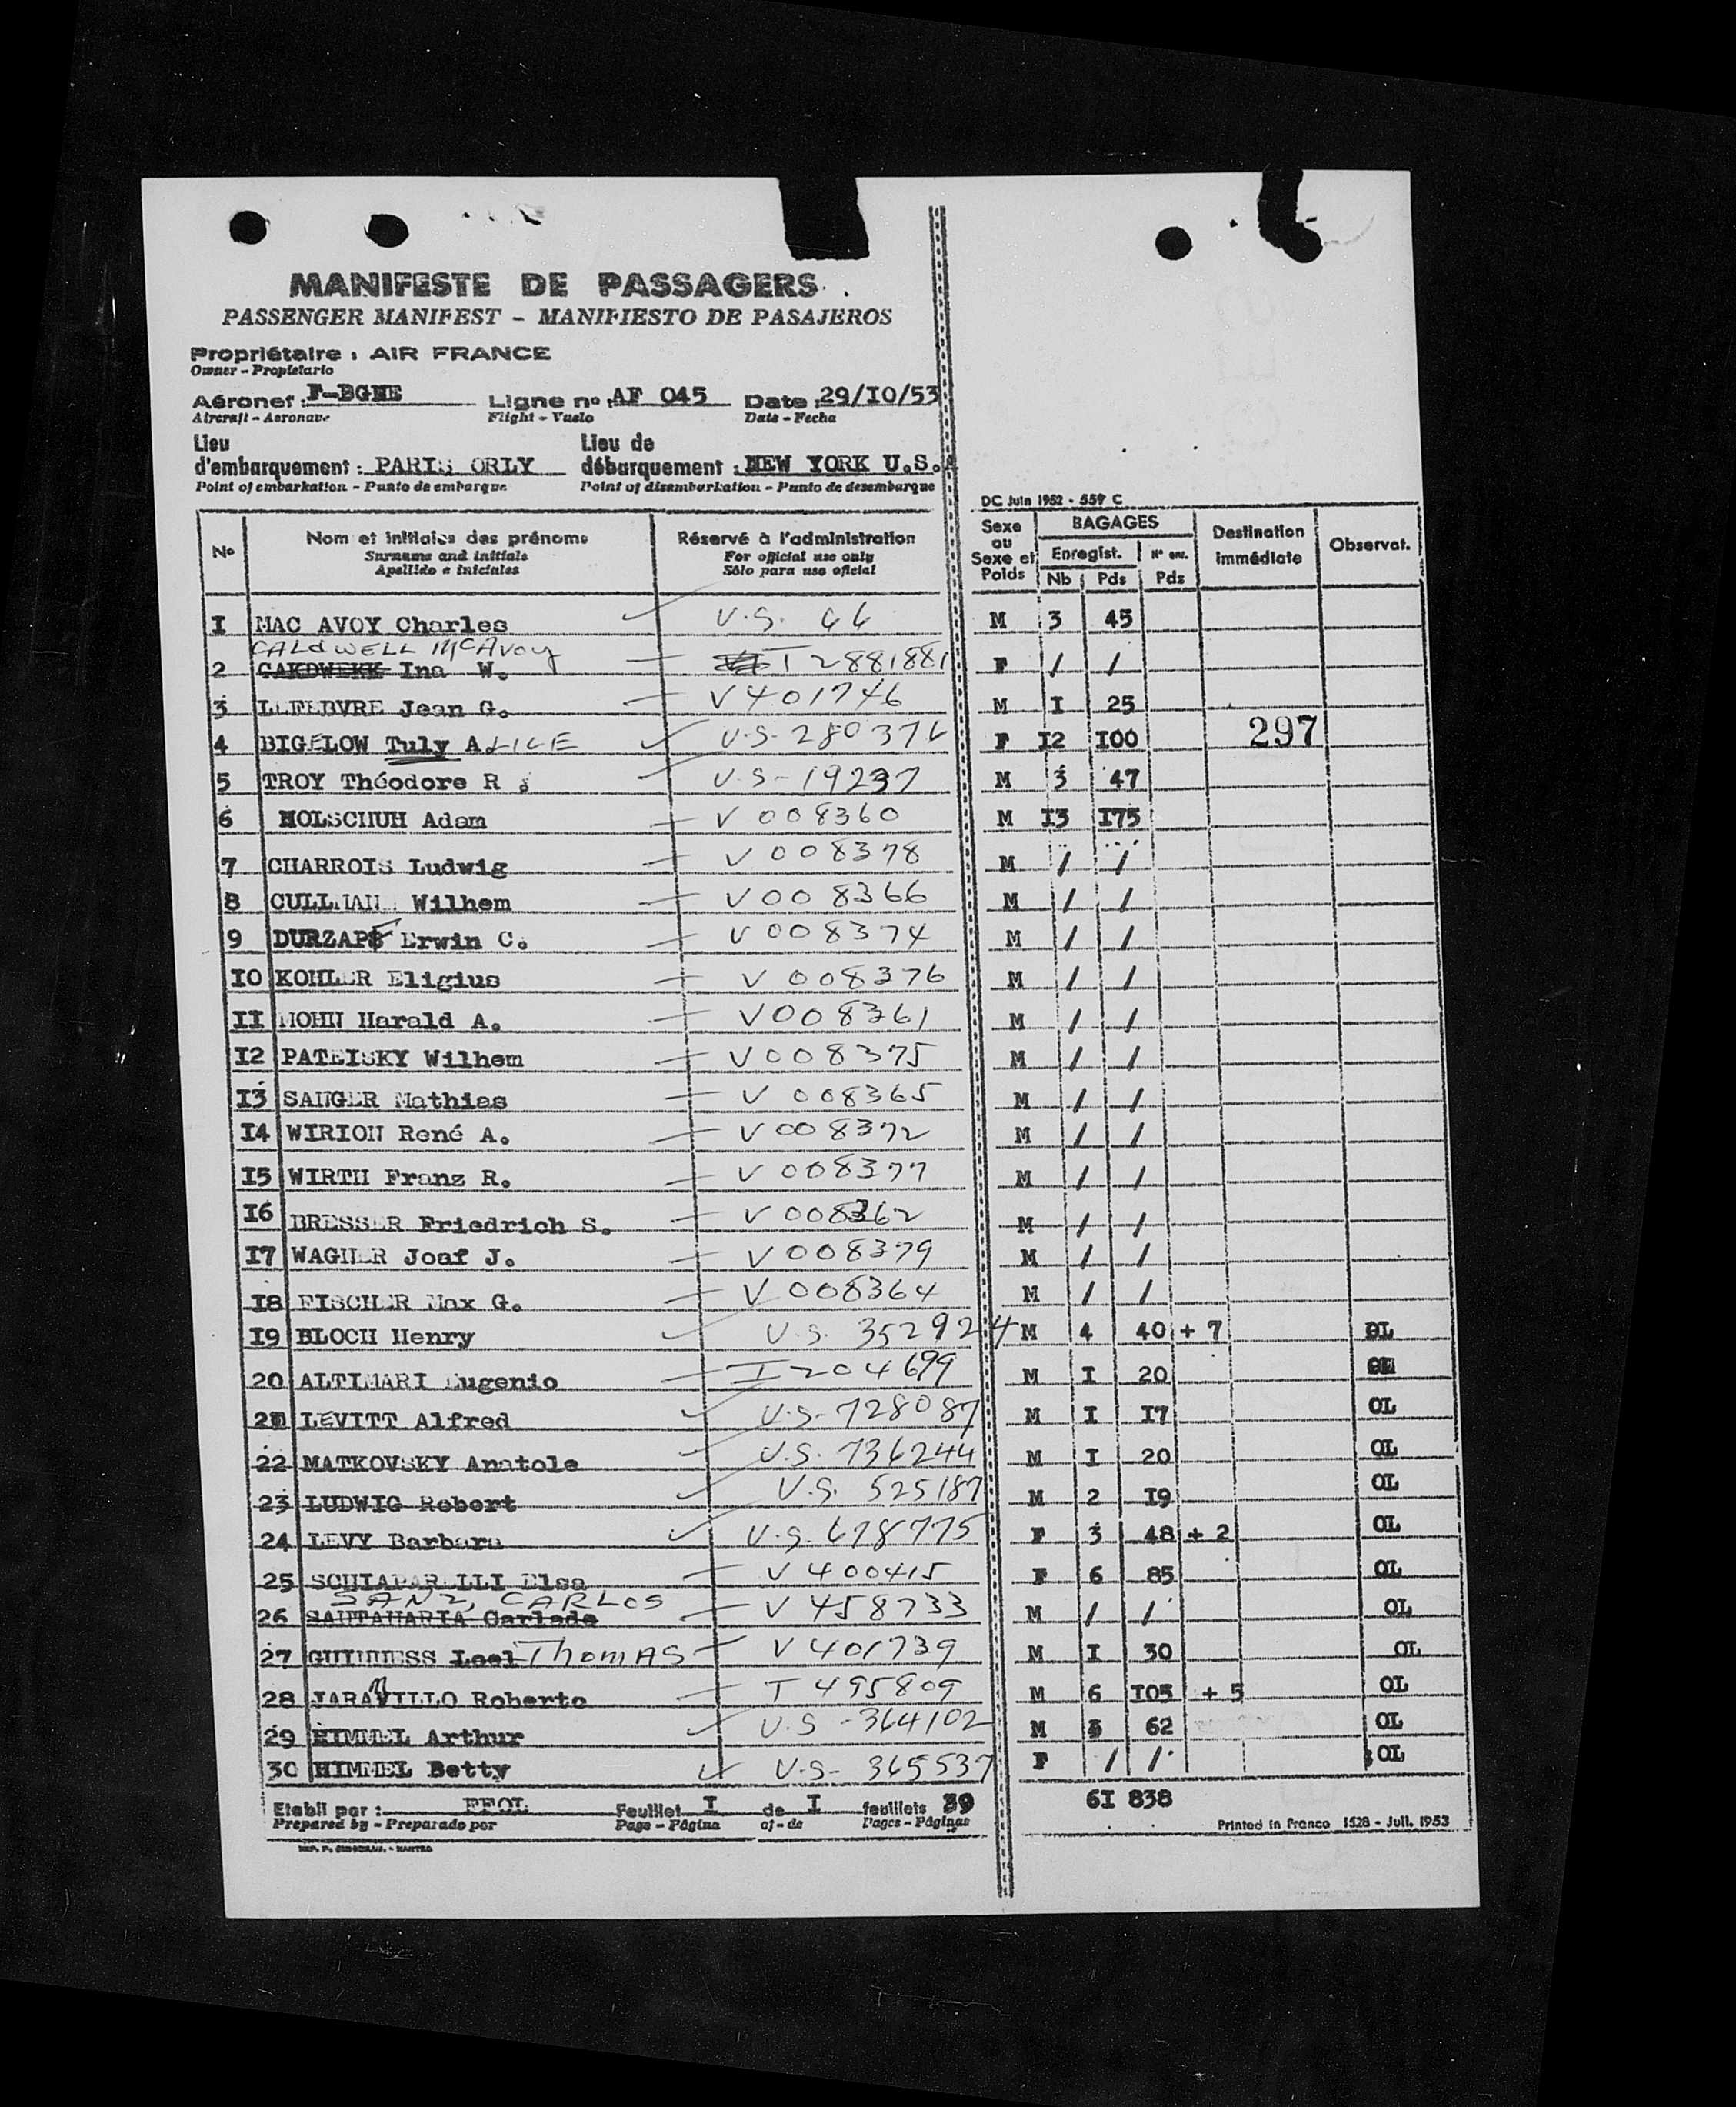 MANIFESTE DE PASSAGERS
PASSENGER MANIFEST - MANIFIESTO DE PASAJEROS
Propriétaire : AIR FRANCE
Owner - Propietario
Aéronef : F-BGNE Ligne no : AF 045 Date : 29/I0/53
Aircraft - Aeronave Flight - Vuelo Date - Fecha
Lieu d'embarquement : PARIS ORLY Lieu de débarquement : NEW YORK U.S.A
Point of embarkation - Punto de embarque Point of disembarkation - Punto de desembarque
DC Juin 1952 - 559 C
No Nom et initiales des prénoms Réservé à l'administration Sexe ou Sexe et Poids BAGAGES Destination immédiate Observat.
Surname and initials For official use only Enregist. No enr.
Apellido e iniciales Sólo para uso oficial Nb Pds Pds
I MAC AVOY Charles U.S. 44 M 3 45
CALDWELL McAvoy
2 CAKDWEKK Ina W. I 2881881 F / /
3 LEFEBVRE Jean G. V401746 M I 25
4 BIGELOW Tuly ALICE U.S- 280376 F I2 I00 297
5 TROY Théodore R. U.S-19237 M 3 47
6 HOLSCHUH Adam V 008360 M I3 I75
7 CHARROIS Ludwig V 008378 M / /
8 CULLMANN Wilhem V008366 M / /
9 DURZAPF Erwin C. V 008374 M / /
IO KOHLER Eligius V 008376 M / /
II MOHN Harald A. V008361 M / /
I2 PATEISKY Wilhem V008375 M / /
I3 SANGER Mathias V 008365 M / /
I4 WIRION René A. V 008372 M / /
I5 WIRTH Franz R. V 008377 M / /
I6 BRESSER Friedrich S. V 008362 M / /
I7 WAGNER Joaf J. V008379 M / /
I8 FISCHER Max G. V 008364 M / /
I9 BLOCH Henry U.S. 352924 M 4 40 + 7 OL
20 ALTIMARI Eugenio I 204699 M I 20 OL
2I LEVITT Alfred U.S-728087 M I I7 OL
22 MATKOVSKY Anatole U.S. 736244 M I 20 OL
23 LUDWIG Robert U.S. 525187 M 2 I9 OL
24 LEVY Barbara U.S. 678775 F 3 48 + 2 OL
25 SCHIAPARELLI Elsa V 400415 F 6 85 OL
SANZ, CARLOS
26 SANTAMARIA Carlade V 458733 M / / OL
27 GUINNESS Loel Thomas V 401739 M I 30 OL
28 JARAMILLO Roberto T 495809 M 6 I05 + 5 OL
29 HIMMEL Arthur U.S -364102 M 5 62 OL
30 HIMMEL Betty U.S- 365537 F / / OL
6I 838
Etabli par : Feuillet I de I feuillets 39
Prepared by - Preparado por Page - Página of - de Pages - Páginas
Printed in France 1528 - Juil. 1953